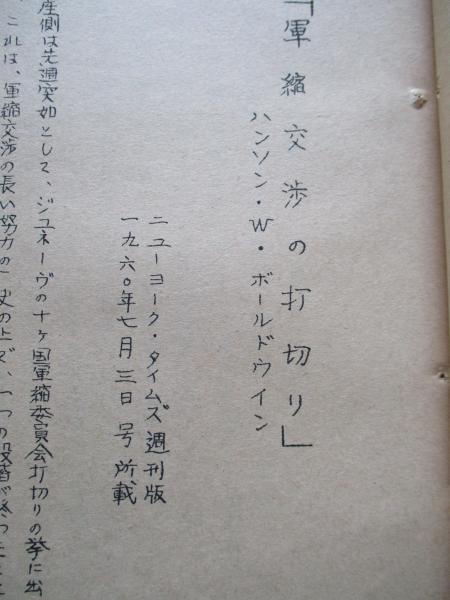 「軍縮交渉の打切り」
ハンソン・W・ボールドウイン
ニューヨーク・タイムズ週刊版
一九六〇年七月三日号所載
産側は先週突如として、ジュネーヴの十ヶ国軍縮委員会打切りの挙に出
これは、軍縮交渉の長い努力の